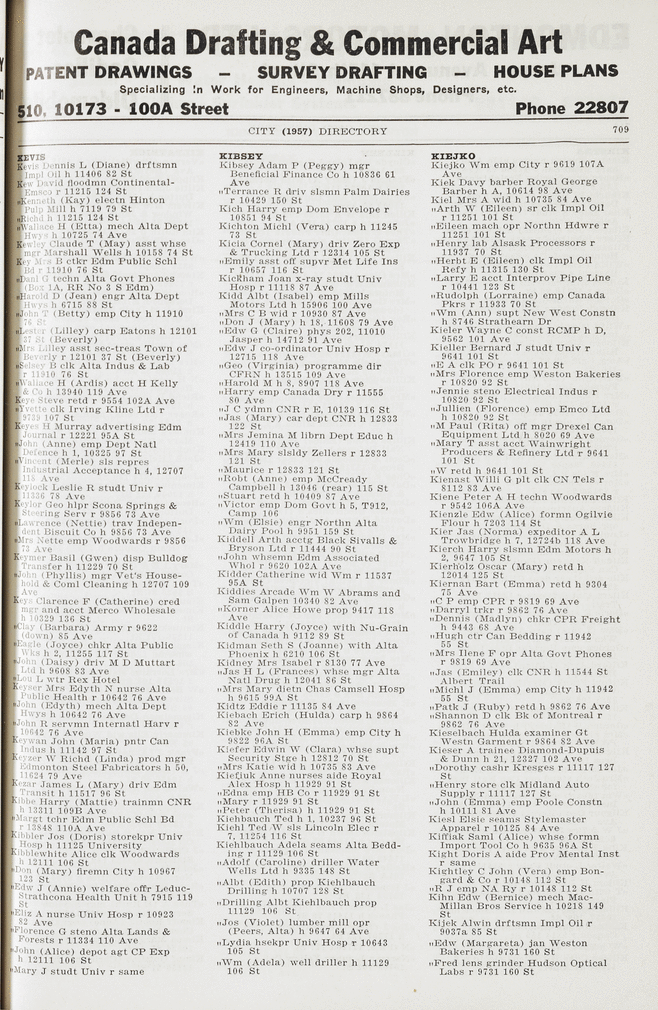 Canada Drafting & Commercial Art
PATENT DRAWINGS — SURVEY DRAFTING — HOUSE PLANS
Specializing in Work for Engineers, Machine Shops, Designers, etc.
510, 10173 - 100A Street Phone 22807
CITY (1957) DIRECTORY 709
KEVIS
Kevis Dennis L (Diane) drftsmn
Impl Oil h 11406 82 St
Kew David floodmn Continental-
Emsco r 11215 124 St
"Kenneth (Kay) electn Hinton
Pulp Mill h 7119 79 St
"Richd h 11215 124 St
"Wallace H (Etta) mech Alta Dept
Hwys h 10725 74 Ave
Kewley Claude T (May) asst whse
mgr Marshall Wells h 10158 74 St
Key Mrs B clk Edm Public Schl
Bd r 11910 76 St
"Danl G techn Alta Govt Phones
(Box 1A, RR No 3 S Edm)
"Harold D (Jean) engr Alta Dept
Hwys h 6715 88 St
"John T (Betty) emp City h 11910
76 St
"Lester (Lilley) carp Eatons h 12101
37 St (Beverly)
"Mrs Lilley asst sec-treas Town of
Beverly r 12101 37 St (Beverly)
"Selsey B clk Alta Indus & Lab
r 11910 76 St
"Wallace H (Ardis) acct H Kelly
& Co h 13940 119 Ave
Keye Steve retd r 9554 102A Ave
"Yvette clk Irving Kline Ltd r
9739 107 St
Keyes H Murray advertising Edm
Journal r 12221 95A St
"John (Anne) emp Dept Natl
Defence h 1, 10325 97 St
"Vincent (Merle) sls repres
Industrial Acceptance h 4, 12707
118 Ave
Keylock Leslie R studt Univ r
11336 78 Ave
Keylor Geo hlpr Scona Springs &
Steering Serv r 9856 73 Ave
"Lawrence (Nettie) trav Indepen-
dent Biscuit Co h 9856 73 Ave
"Mrs Nette emp Woodwards r 9856
73 Ave
Keymer Basil (Gwen) disp Bulldog
Transfer h 11229 70 St
"John (Phyllis) mgr Vet's House-
hold & Coml Cleaning h 12707 109
Ave
Keys Clarence F (Catherine) cred
mgr and acct Merco Wholesale
h 10329 136 St
"Clay (Barbara) Army r 9622
(down) 85 Ave
"Eagle (Joyce) chkr Alta Public
Wks h 2, 11255 117 St
"John (Daisy) driv M D Muttart
Ltd h 9608 83 Ave
"Lou L wtr Rex Hotel
Keyser Mrs Edyth N nurse Alta
Public Health r 10642 76 Ave
"John (Edyth) mech Alta Dept
Hwys h 10642 76 Ave
"John R servmn Internatl Harv r
10642 76 Ave
Keywan John (Maria) pntr Can
Indus h 11142 97 St
Keyzer W Richd (Linda) prod mgr
Edmonton Steel Fabricators h 50,
11624 79 Ave
Kezar James L (Mary) driv Edm
Transit h 11517 96 St
Kibbe Harry (Mattie) trainmn CNR
h 13311 109B Ave
"Margt tchr Edm Public Schl Bd
r 13848 110A Ave
Kibbler Jos (Doris) storekpr Univ
Hosp h 11125 University
Kibblewhite Alice clk Woodwards
h 12111 106 St
"Don (Mary) firemn City h 10967
123 St
"Edw J (Annie) welfare offr Leduc-
Strathcona Health Unit h 7915 119
St
"Eliz A nurse Univ Hosp r 10923
82 Ave
"Florence G steno Alta Lands &
Forests r 11334 110 Ave
"John (Alice) depot agt CP Exp
h 12111 106 St
"Mary J studt Univ r same
KIBSEY
Kibsey Adam P (Peggy) mgr
Beneficial Finance Co h 10836 61
Ave
"Terrance R driv slsmn Palm Dairies
r 10429 150 St
Kich Harry emp Dom Envelope r
10851 94 St
Kichton Michl (Vera) carp h 11245
73 St
Kicia Cornel (Mary) driv Zero Exp
& Trucking Ltd r 12314 105 St
"Emily asst off supvr Met Life Ins
r 10657 116 St
Kickham Joan x-ray studt Univ
Hosp r 11118 87 Ave
Kidd Albt (Isabel) emp Mills
Motors Ltd h 15906 100 Ave
"Mrs C B wid r 10930 87 Ave
"Don J (Mary) h 18, 11608 79 Ave
"Edw G (Claire) phys 202, 11010
Jasper h 14712 91 Ave
"Edw J co-ordinator Univ Hosp r
12715 118 Ave
"Geo (Virginia) programme dir
CFRN h 13515 109 Ave
"Harold M h 8, 8907 118 Ave
"Harry emp Canada Dry r 11555
80 Ave
"J C ydmn CNR r E, 10139 116 St
"Jas (Mary) car dept CNR h 12833
122 St
"Mrs Jemina M librn Dept Educ h
12419 110 Ave
"Mrs Mary slsldy Zellers r 12833
121 St
"Maurice r 12833 121 St
"Robt (Anne) emp McCready
Campbell h 13046 (rear) 115 St
"Stuart retd h 10409 87 Ave
"Victor emp Dom Govt h 5, T912,
Camp 106
"Wm (Elsie) engr Northn Alta
Dairy Pool h 9951 159 St
Kiddell Arth acctg Black Sivalls &
Bryson Ltd r 11444 90 St
"John whsemn Edm Associated
Whol r 9620 102A Ave
Kidder Catherine wid Wm r 11537
95A St
Kiddies Arcade Wm W Abrams and
Sam Galpen 10340 82 Ave
"Korner Alice Howe prop 9417 118
Ave
Kiddle Harry (Joyce) with Nu-Grain
of Canada h 9112 89 St
Kidman Seth S (Joanne) with Alta
Phoenix h 6210 106 St
Kidney Mrs Isabel r 8130 77 Ave
"Jas H L (Frances) whse mgr Alta
Natl Drug h 12041 86 St
"Mrs Mary dietn Chas Camsell Hosp
h 9615 99A St
Kidtz Eddie r 11135 84 Ave
Kiebach Erich (Hulda) carp h 9864
82 Ave
Kiebke John H (Emma) emp City h
9822 96A St
Kiefer Edwin W (Clara) whse supt
Security Stge h 12812 70 St
"Mrs Katie wid h 10735 83 Ave
Kiefiuk Anne nurses aide Royal
Alex Hosp h 11929 91 St
"Edna emp HB Co r 11929 91 St
"Mary r 11929 91 St
"Peter (Therisa) h 11929 91 St
Kiehbauch Ted h 1, 10237 96 St
Kiehl Ted W sls Lincoln Elec r
7, 11254 116 St
Kiehlbauch Adela seams Alta Bedd-
ing r 11129 106 St
"Adolf (Caroline) driller Water
Wells Ltd h 9335 148 St
"Albt (Edith) prop Kiehlbauch
Drilling h 10707 128 St
"Drilling Albt Kiehlbauch prop
11129 106 St
"Jos (Violet) lumber mill opr
(Peers, Alta) h 9647 64 Ave
"Lydia hsekpr Univ Hosp r 10643
105 St
"Wm (Adela) well driller h 11129
106 St
KIEJKO
Kiejko Wm emp City r 9619 107A
Ave
Kiek Davy barber Royal George
Barber h A, 10614 98 Ave
Kiel Mrs A wid h 10735 84 Ave
"Arth W (Eileen) sr clk Impl Oil
r 11251 101 St
"Eileen mach opr Northn Hdwre r
11251 101 St
"Henry lab Alsask Processors r
11937 70 St
"Herbt E (Eileen) clk Impl Oil
Refy h 11315 130 St
"Larry E acct Interprov Pipe Line
r 10441 123 St
"Rudolph (Lorraine) emp Canada
Pkrs r 11933 70 St
"Wm (Ann) supt New West Constn
h 8746 Strathearn Dr
Kieler Wayne C const RCMP h D,
9562 101 Ave
Kieller Bernard J studt Univ r
9641 101 St
"E A clk PO r 9641 101 St
"Mrs Florence emp Weston Bakeries
r 10820 92 St
"Jennie steno Electrical Indus r
10820 92 St
"Jullien (Florence) emp Emco Ltd
h 10820 92 St
"M Paul (Rita) off mgr Drexel Can
Equipment Ltd h 8020 69 Ave
"Mary T asst acct Wainwright
Producers & Refinery Ltd r 9641
101 St
"W retd h 9641 101 St
Kienast Willi G plt clk CN Tels r
8112 83 Ave
Kiene Peter A H techn Woodwards
r 9542 106A Ave
Kienzle Edw (Alice) formn Ogilvie
Flour h 7203 114 St
Kier Jas (Norma) expeditor A L
Trowbridge h 7, 12724b 118 Ave
Kierch Harry slsmn Edm Motors h
2, 9647 105 St
Kierholz Oscar (Mary) retd h
12014 125 St
Kiernan Bart (Emma) retd h 9304
75 Ave
"C P emp CPR r 9819 69 Ave
"Darryl trkr r 9862 76 Ave
"Dennis (Madlyn) chkr CPR Freight
h 9443 68 Ave
"Hugh ctr Can Bedding r 11942
55 St
"Mrs Ilene F opr Alta Govt Phones
r 9819 69 Ave
"Jas (Emiley) clk CNR h 11544 St
Albert Trail
"Michl J (Emma) emp City h 11942
55 St
"Patk J (Ruby) retd h 9862 76 Ave
"Shannon D clk Bk of Montreal r
9862 76 Ave
Kieselbach Hulda examiner Gt
Westn Garment r 9864 82 Ave
Kieser A trainee Diamond-Dupuis
& Dunn h 21, 12327 102 Ave
"Dorothy cashr Kresges r 11117 127
St
"Henry store clk Midland Auto
Supply r 11117 127 St
"John (Emma) emp Poole Constn
h 10111 81 Ave
Kiesl Else seams Stylemaster
Apparel r 10125 84 Ave
Kiffiak Saml (Alice) whse formn
Import Tool Co h 9635 96A St
Kight Doris A aide Prov Mental Inst
r same
Kightley C John (Vera) emp Bon-
gard & Co r 10148 112 St
"R J emp NA Ry r 10148 112 St
Kihn Edw (Bernice) mech Mac-
Millan Bros Service h 10218 149
St
Kijek Alwin drftsmn Impl Oil r
9037a 85 St
"Edw (Margareta) jan Weston
Bakeries h 9731 160 St
"Fred lens grinder Hudson Optical
Labs r 9731 160 St